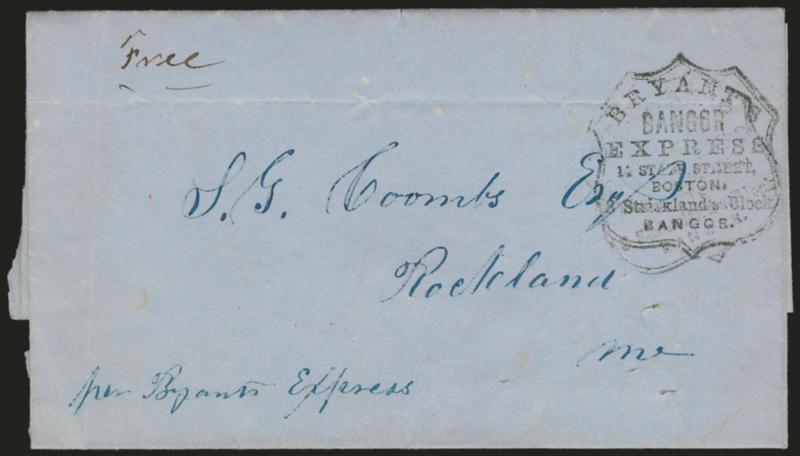 Free
BRYANT'S
BANGOR
EXPRESS
STATE STREET,
BOSTON,
Strickland's Block
BANGOR.
S. G. Coombs Esqr
Rockland
Me
per Bryants Express